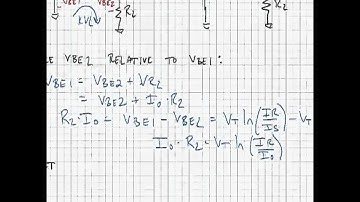 VBE1 VBE2 R2
KVL
R2
VBE2 RELATIVE TO VBE1 :
VBE1 = VBE2 + VR2
= VBE2 + Io · R2
R2 · Io = VBE1 - VBE2 = VT ln(IR/IS) - VT
Io · R2 = VT ln(IR/Io)